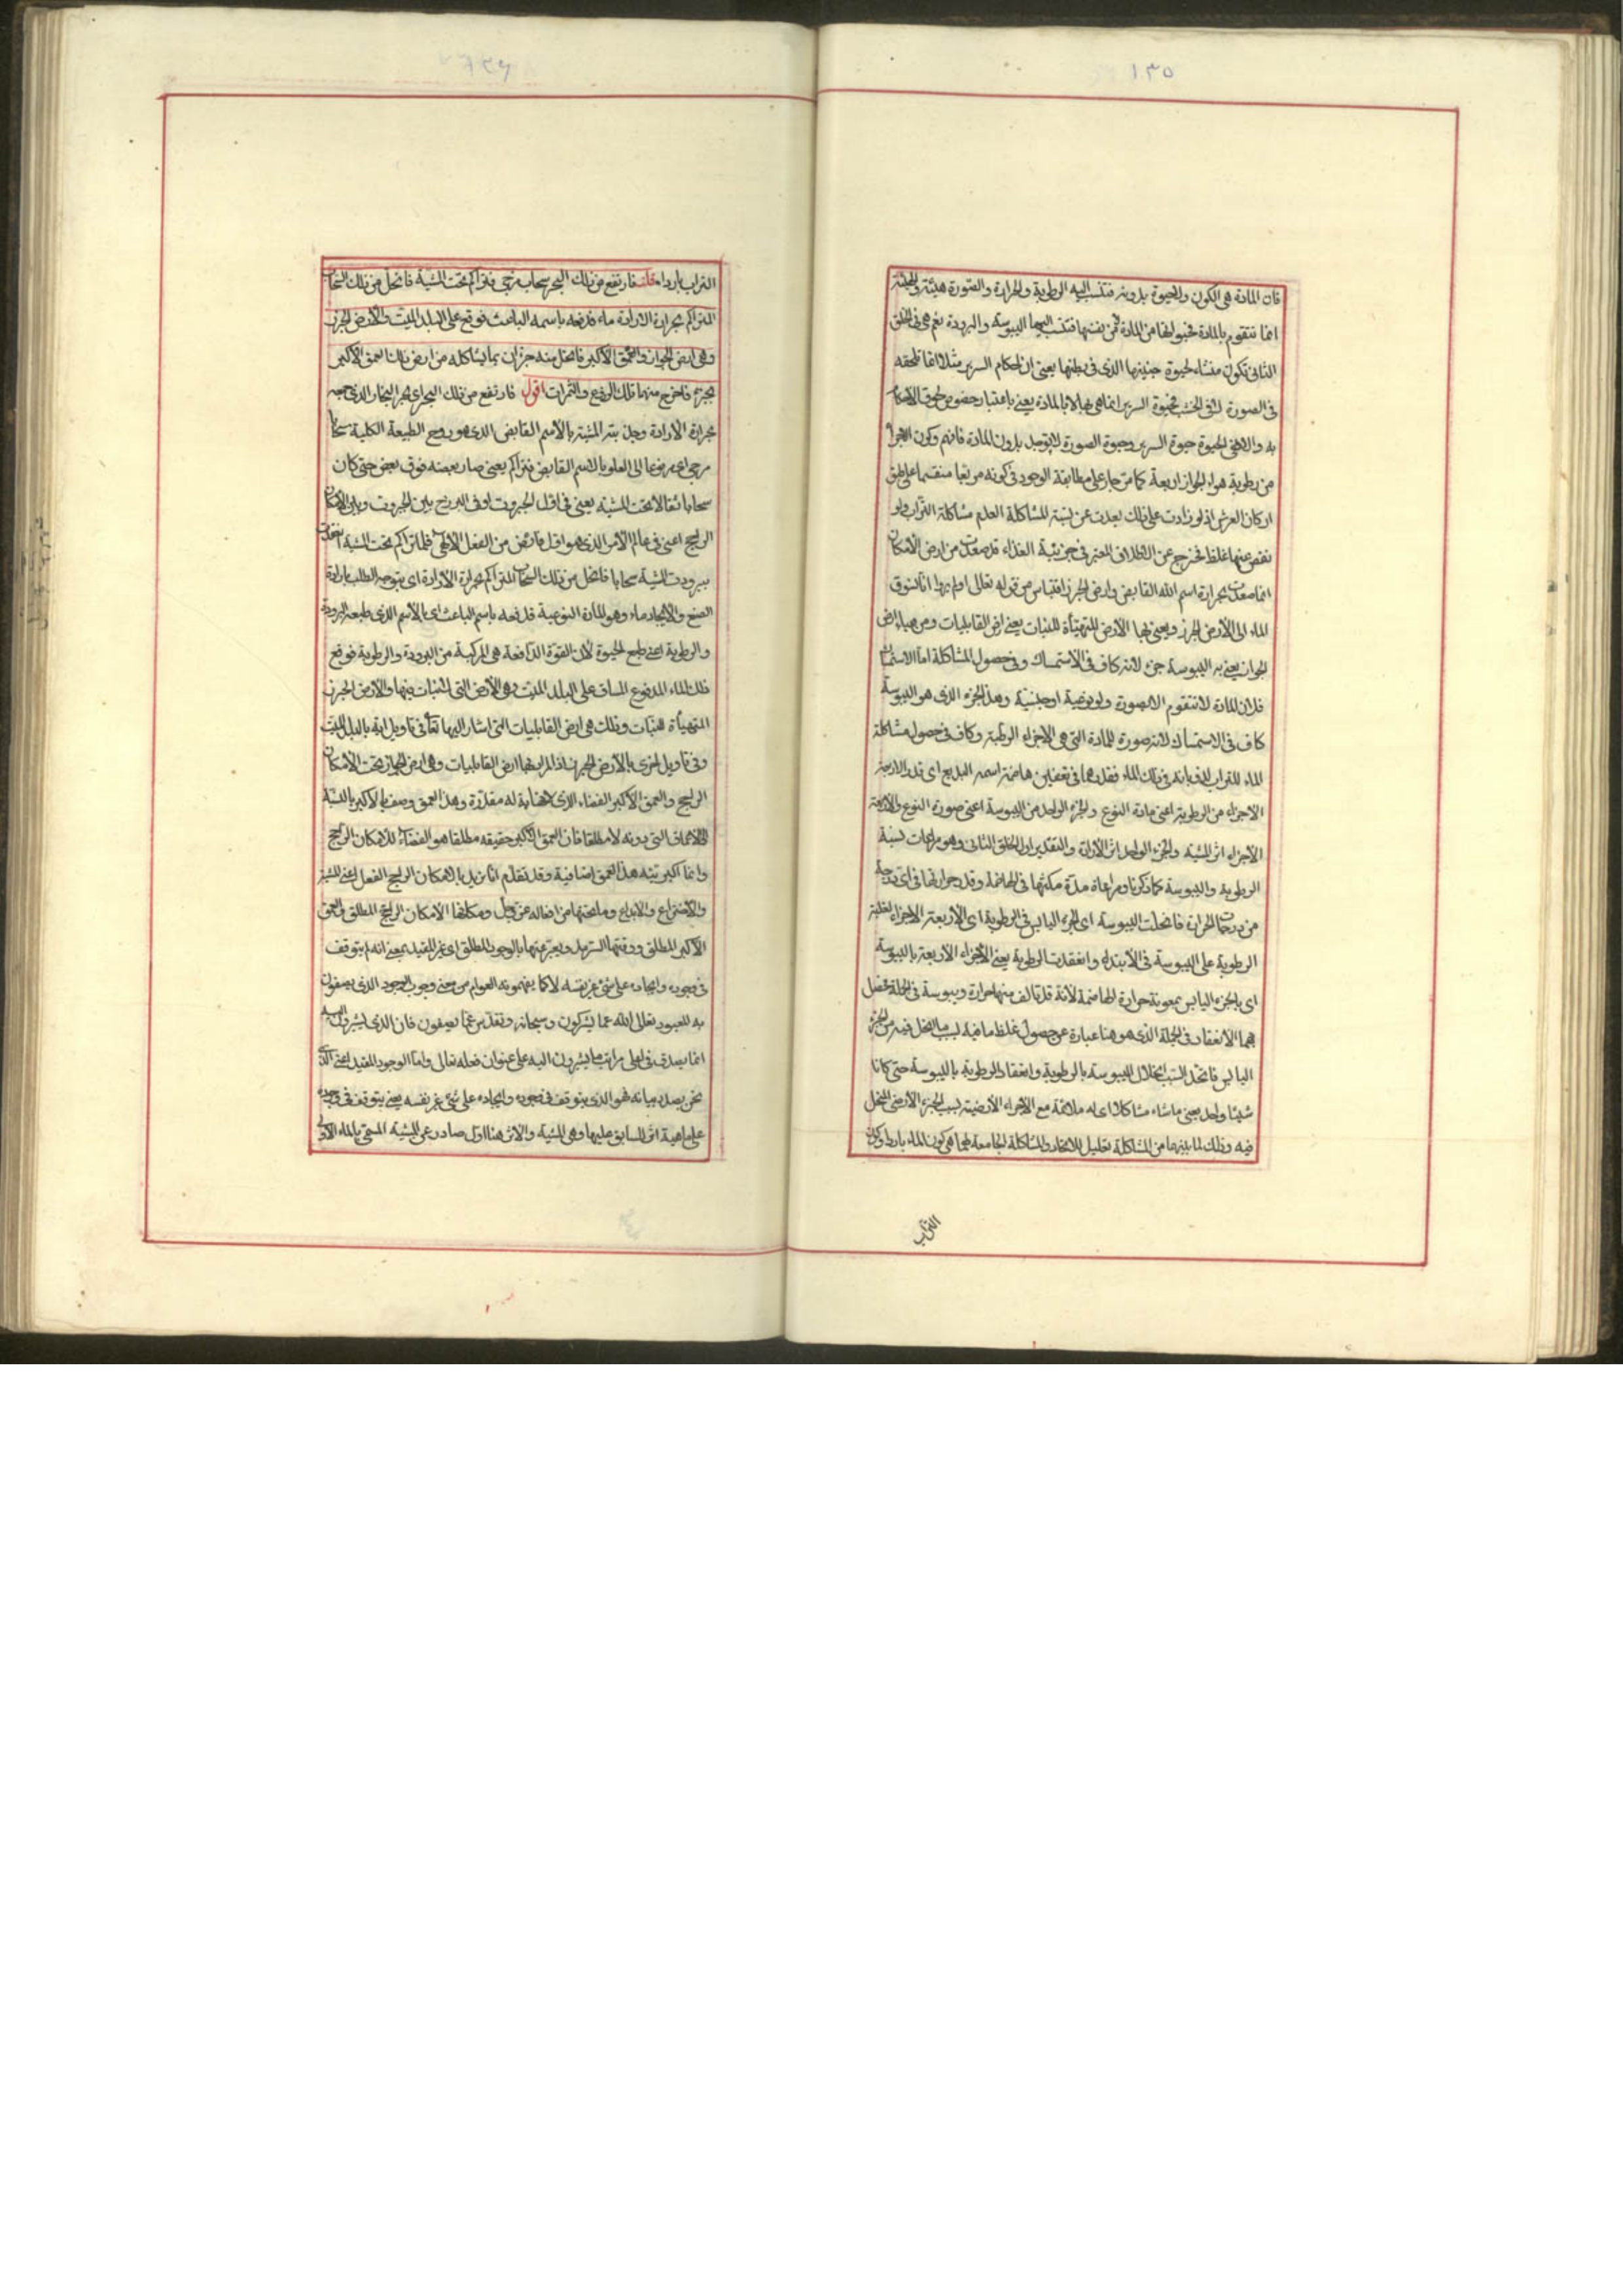 ١٣٥
فان المادة هى الكون والحيوة بدونه فتنسب اليه الرطوبة والحرارة والصورة هيئته والهيئة
انما تتقوم بالمادة فحيوتها من المادة فمن نفسها فتنسب اليها اليبوسة والبرودة نعم هى فى الخلق
الثانى تكون منشاء لحيوة جنينها الذى فى بطنها يعنى ان احكام السرير مثلا انما تلحقه
فى الصورة لا فى الخشب فحيوة السرير انما هى بها لا بالمادة يعنى باعتبار خصوص لحوق الاحكام
به والا فهى لحيوة حيوة السرير وحيوة الصورة لا توجد بدون المادة فافهم وكون الاجزاء
من رطوبة هواء الجواز اربعة كما مر جار على مطابقة الوجود فى كونه مربعا منقسما على طبق
اركان العرش اذ لو زادت على ذلك بعدت عن نسبة المشاكلة لعدم مشاكلة التراب ولو
نقص عنها غلظ فخرج عن الاطلاق المعتبر فى جزئية الغذاء قد صعدت من ارض الامكان
انما صعدت بحرارة اسم الله القابض وارض الجرز اقتباس من قوله تعالى اولم يروا انا نسوق
الماء الى الارض الجرز ويعنى بها الارض المتهيأة للنبات يعنى ارض القابليات ومن هباء ارض
الجواز يعنى به اليبوسة جزء لانه كاف فى الاستمساك وفى حصول المشاكلة اما الاستمساك
فلان المادة لا تتقوم الا بصورة ولو نوعية او جنسية وهذا الجزء الذى هو اليبوسة
كاف فى الاستمساك لانه صورة للمادة التى هى الاجزاء الرطبة وكاف فى حصول مشاكلة
الماء للتراب لذوبانه فى ذلك الماء فقدرهما فى تعفين هاضمة اسمه البديع اى قدر الاربعة
الاجزاء من الرطوبة اعنى مادة النوع والجزء الواحد من اليبوسة اعنى صورة النوع والاربعة
الاجزاء اثر المشية والجزء الواحد اثر الارادة والتقدير اول الخلق الثانى وهو مراعات نسبة
الرطوبة واليبوسة كما ذكرنا ومراعاة مدة مكثها فى الهاضمة وقدر حرارتها فى اى درجة
من درجات الحرارة فانحلت اليبوسة اى الجزء اليابس فى الرطوبة اى الاربعة الاجزاء لغلبة
الرطوبة على اليبوسة فى الابتداء وانعقدت الرطوبة يعنى الاجزاء الاربعة باليبوسة
اى بالجزء اليابس بمعونة حرارة الهاضمة لانه قد تالف منها حرارة ويبوسة فى الجملة فحصل
بهما الانعقاد فى الجملة الذى هو هنا عبارة عن حصول غلظ ما فيه بسبب ما انحل فيه من الجزء
اليابس فاتحد السبب انحلال اليبوسة بالرطوبة وانعقاد الرطوبة باليبوسة حتى كانا
شيئا واحدا يعنى ماشاء مشاكلا اى له ملائمة مع الاجزاء الارضية بسبب الجزء الارضى المنحل
فيه وذلك لما بينهما من المشاكلة تعليل للاتحاد والمشاكلة الجامعة لهما هى كون الماء باردا وكون
التراب
التراب باردا قلت فارتفع من ذلك البحر سحاب مزجى فتراكم تحت المشية فانحل من ذلك السحاب
المتراكم بحرارة الارادة ماء فدفعه باسمه الباعث فوقع على البلد الميت والارض الجرز
وهى ارض الجواز والعمق الاكبر فانحل منه جزءان بما يشاكله من ارض ذلك العمق الاكبر
بجزء فاخرج منهما تلك الزروع والثمرات اقول فارتفع من ذلك البحر اى بحر البخار الذى جمعه
بحرارة الارادة وجذبته المشية بالاسم القابض الذى هو روح الطبيعة الكلية سحابا
مزجى اى مرفوعا الى العلو بالاسم القابض فتراكم يعنى صار بعضه فوق بعض حتى كان
سحابا ثقالا تحت المشية يعنى فى اول الجبروت او فى البرزخ بين الجبروت وبين الامكان
الراجح اعنى فى عالم الامر الذى هو اول فائض من الفعل الالهى فلما تراكم تحت المشية انعقدت
ببرودت المشية سحابا فانحل من ذلك السحاب المتراكم بحرارة الارادة اى بتوجه الطلب بارادة
الصنع والايجاد ماء وهو المادة النوعية فدفعه باسمه الباعث اى بالاسم الذى طبعه البرودة
والرطوبة اعنى طبع الحيوة لان القوة الدافعة هى المركبة من البرودة والرطوبة فوقع
ذلك الماء المدفوع المساق على البلد الميت وهى الارض التى لا نبات فيها والارض الجرز
المتهيأة للنبات وذلك هى ارض القابليات التى اشار اليها تعالى فى تاويل اية بالبلد الميت
وفى تاويل اخرى بالارض الجرز اذ المراد بهما ارض القابليات وهى ارض الجواز تحت الامكان
الراجح والعمق الاكبر الفضاء الذى لا نهاية له مقدرة وهذا العمق وصف بالاكبر بالنسبة
الى الاعماق التى دونه لا مطلقا فان العمق الاكبر حقيقة مطلقا هو الفضاء للامكان الراجح
وانما اكبريته هذا العمق اضافية وقد تقدم انا نريد بالامكان الراجح الفعل اعنى المشية
والاختراع والابداع وما تحتها من افعاله عز وجل ومكانها الامكان الراجح المطلق والعمق
الاكبر المطلق ووقتها السرمد ويعبر عنها بالوجود المطلق اى غير المقيد بمعنى انه لم يتوقف
فى وجوده وايجاده على شئ غير نفسه لا كما يفهمونه العوام من معنى وجوب الوجود الذى يصفون
به المعبود تعالى الله عما يشركون وسبحانه وتقدس عما يصفون فان الذى يشيرون اليه
انما يصدق فى اعلى مراتب ما يشيرون اليه على عنوان فعله تعالى واما الوجود المقيد اعنى الذى
نحن بصدد بيانه فهو الذى يتوقف فى وجوده وايجاده على شئ غير نفسه يعنى يتوقف فى وجوده
على ماهية اثر السابق عليها وهى المشية والاثر هنا اول صادر عن المشية المسمى بالماء الاول